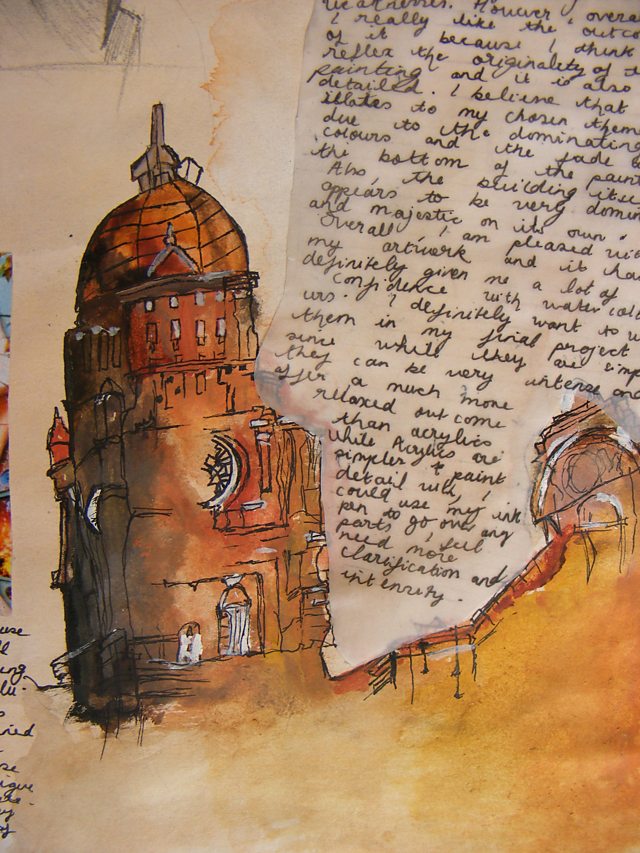 weaknesses. However, overall
I really like the outco
of it because I think
reflex the originality of t
painting and it is also
detailed. I believe that
illates to my chosen them
due to the dominating
colours and the fade
the bottom of the paint
Also, the building itse
appears to be very domin
and majestic on its own.
Overall, I am pleased wit
my artwork and it ha
definitely given me a lot of
confidence with water col
urs. I definitely want to u
them in my final project
since while they are simp
they can be very intense and
offer a much more
relaxed outcome
than acrylics
while Acrylics are
simpler to paint
detail with, I
could use my ink
pen to go over any
parts I feel
need more
clarification and
intensity.
use
ll
ing
lu-
ried
se
ique
ere-
ry
of